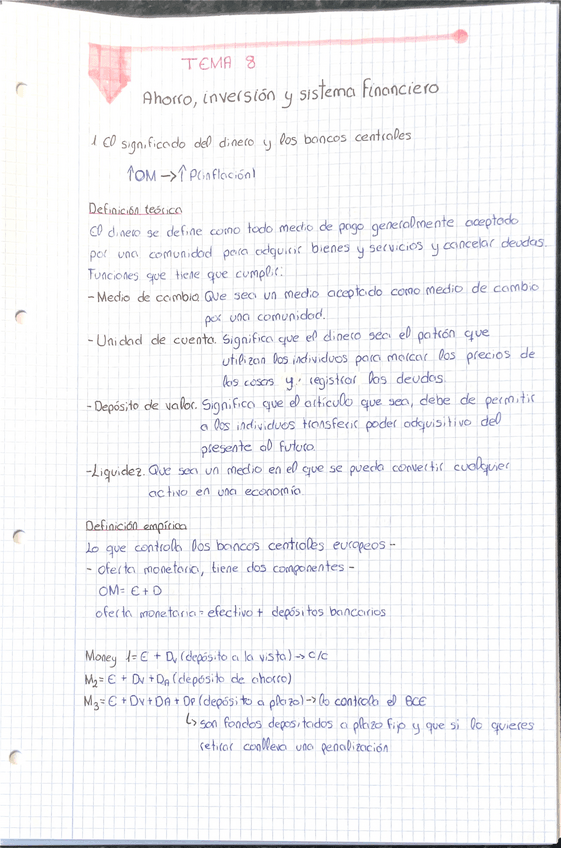 TEMA 8
Ahorro, inversión y sistema financiero
1 El significado del dinero y los bancos centrales
↑OM → ↑P(inflación)
Definición teórica
El dinero se define como todo medio de pago generalmente aceptado
por una comunidad para adquirir bienes y servicios y cancelar deudas.
Funciones que tiene que cumplir:
- Medio de cambio. Que sea un medio aceptado como medio de cambio
por una comunidad.
- Unidad de cuenta. Significa que el dinero sea el patrón que
utilizan los individuos para marcar los precios de
las cosas y registrar las deudas.
- Depósito de valor. Significa que el artículo que sea, debe de permitir
a los individuos transferir poder adquisitivo del
presente al futuro.
- Liquidez. Que sea un medio en el que se pueda convertir cualquier
activo en una economía.
Definición empírica
Lo que controla los bancos centrales europeos -
- oferta monetaria, tiene dos componentes -
OM = E + D
oferta monetaria = efectivo + depósitos bancarios
Money 1 = E + Dv (depósito a la vista) → c/c
M2 = E + Dv + DA (depósito de ahorro)
M3 = E + Dv + DA + DP (depósito a plazo) → lo controla el BCE
↳ son fondos depositados a plazo fijo y que si lo quieres
retirar conlleva una penalización